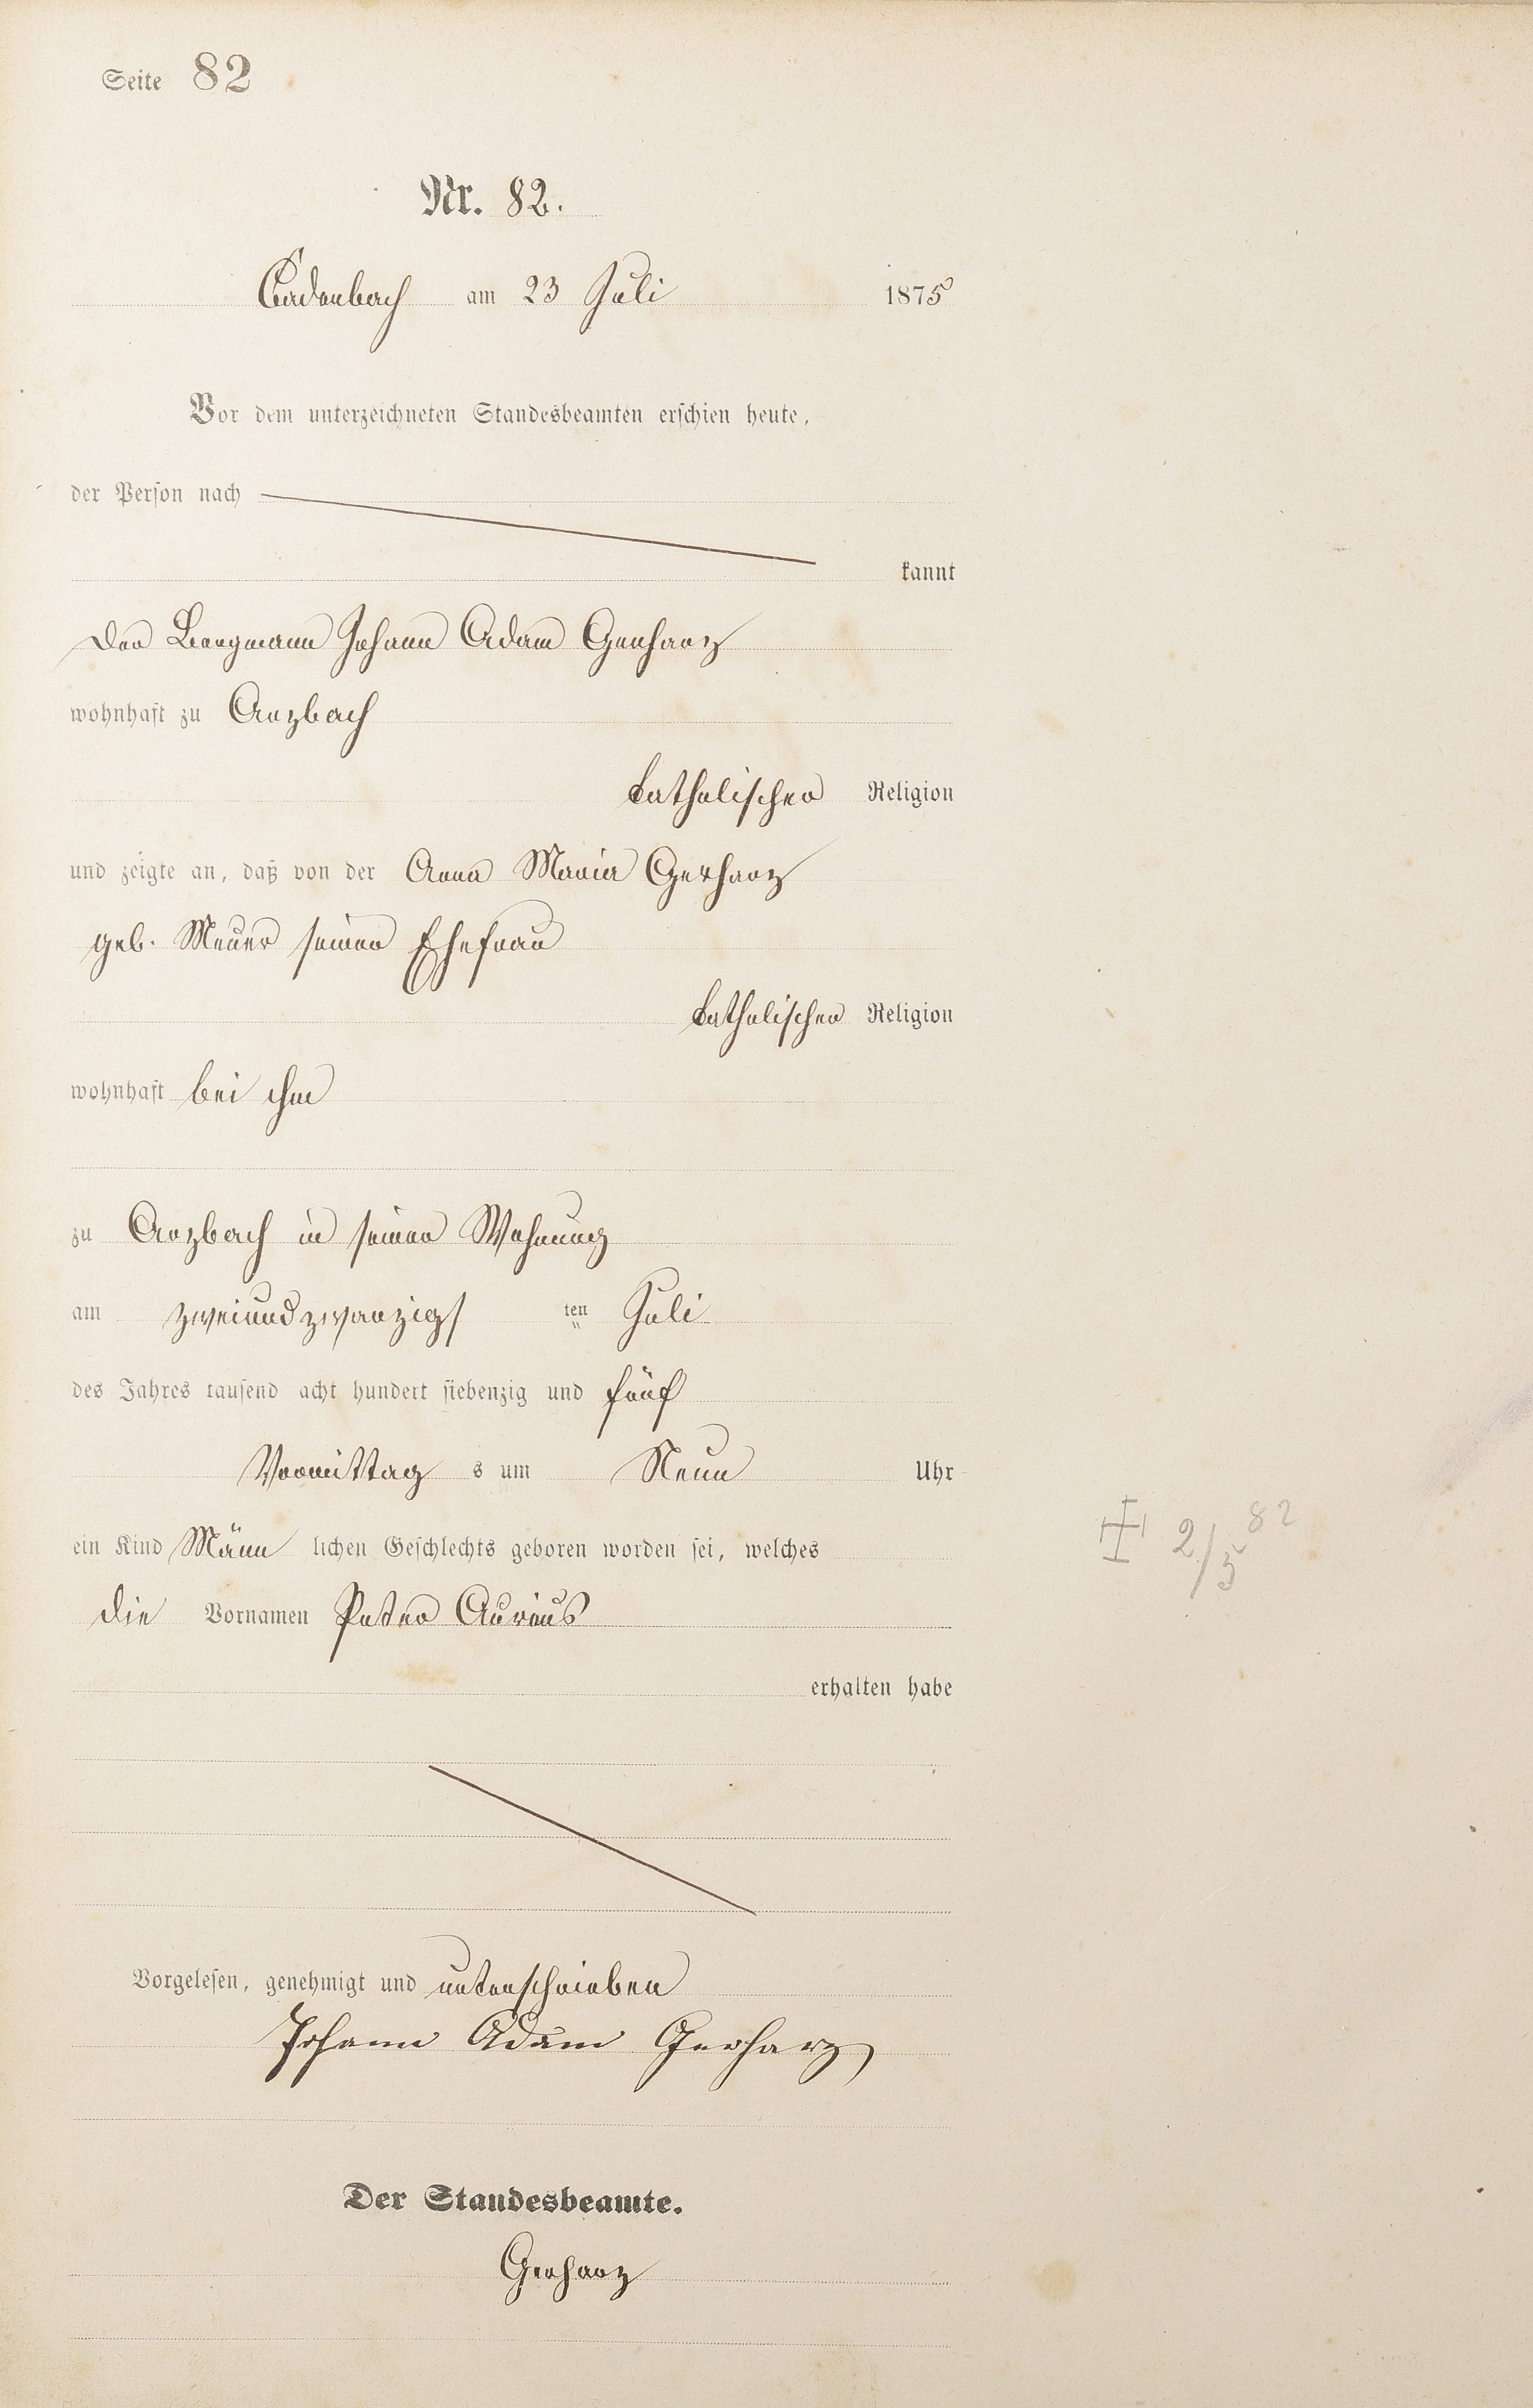 Seite 82
Nr. 82.
Cadenbach am 23 Juli 1875
Vor dem unterzeichneten Standesbeamten erschien heute,
der Person nach
kannt
der Bergmann Johann Adam Gerharz
wohnhaft zu Arzbach
katholischer Religion
und zeigte an, daß von der Anna Maria Gerharz
geb. Meuer seiner Ehefrau
katholischer Religion
wohnhaft bei ihm
zu Arzbach in seiner Wohnung
am zweiundzwanzigs ten Juli
des Jahres tausend acht hundert siebenzig und fünf
Vormittag s um Neun Uhr
ein Kind Männ lichen Geschlechts geboren worden sei, welches
2/5 82
die Vornamen Peter
erhalten habe
Vorgelesen, genehmigt und unterschrieben
Johann Adam Gerharz
Der Standesbeamte.
Gerharz